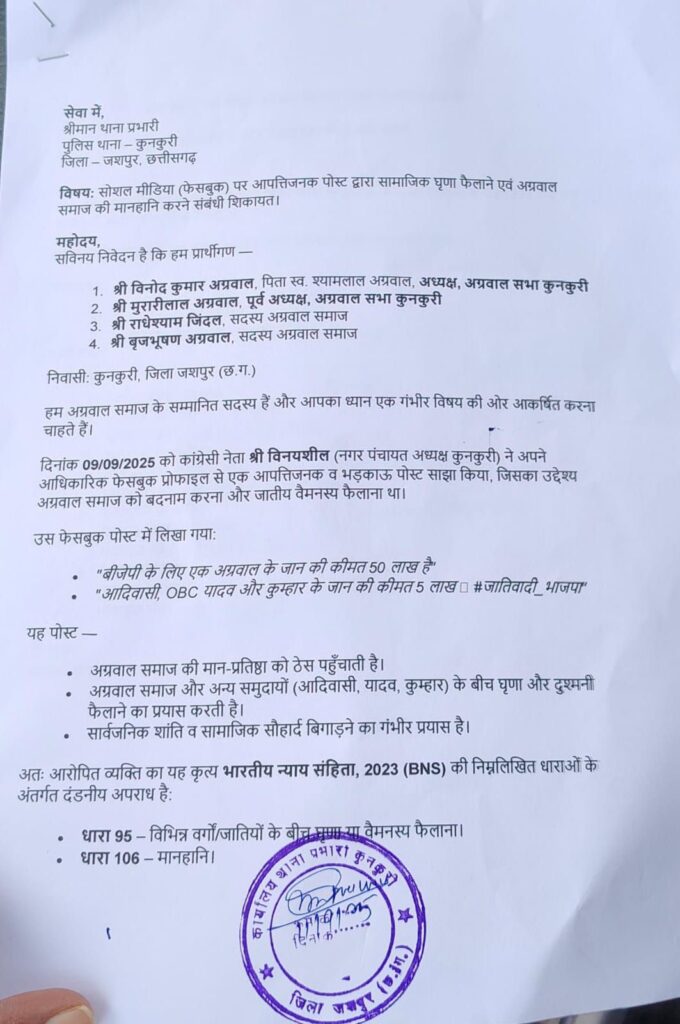 सेवा में,
श्रीमान थाना प्रभारी
पुलिस थाना – कुनकुरी
जिला – जशपुर, छत्तीसगढ़
विषय: सोशल मीडिया (फेसबुक) पर आपत्तिजनक पोस्ट द्वारा सामाजिक घृणा फैलाने एवं अग्रवाल
समाज की मानहानि करने संबंधी शिकायत।
महोदय,
सविनय निवेदन है कि हम प्रार्थीगण —
1. श्री विनोद कुमार अग्रवाल, पिता स्व. श्यामलाल अग्रवाल, अध्यक्ष, अग्रवाल सभा कुनकुरी
2. श्री मुरारीलाल अग्रवाल, पूर्व अध्यक्ष, अग्रवाल सभा कुनकुरी
3. श्री राधेश्याम जिंदल, सदस्य अग्रवाल समाज
4. श्री बृजभूषण अग्रवाल, सदस्य अग्रवाल समाज
निवासी: कुनकुरी, जिला जशपुर (छ.ग.)
हम अग्रवाल समाज के सम्मानित सदस्य हैं और आपका ध्यान एक गंभीर विषय की ओर आकर्षित करना
चाहते हैं।
दिनांक 09/09/2025 को कांग्रेसी नेता श्री विनयशील (नगर पंचायत अध्यक्ष कुनकुरी) ने अपने
आधिकारिक फेसबुक प्रोफाइल से एक आपत्तिजनक व भड़काऊ पोस्ट साझा किया, जिसका उद्देश्य
अग्रवाल समाज को बदनाम करना और जातीय वैमनस्य फैलाना था।
उस फेसबुक पोस्ट में लिखा गया:
• "बीजेपी के लिए एक अग्रवाल के जान की कीमत 50 लाख है"
• "आदिवासी, OBC यादव और कुम्हार के जान की कीमत 5 लाख □ #जातिवादी_भाजपा"
यह पोस्ट —
• अग्रवाल समाज की मान-प्रतिष्ठा को ठेस पहुँचाती है।
• अग्रवाल समाज और अन्य समुदायों (आदिवासी, यादव, कुम्हार) के बीच घृणा और दुश्मनी
फैलाने का प्रयास करती है।
• सार्वजनिक शांति व सामाजिक सौहार्द बिगाड़ने का गंभीर प्रयास है।
अतः आरोपित व्यक्ति का यह कृत्य भारतीय न्याय संहिता, 2023 (BNS) की निम्नलिखित धाराओं के
अंतर्गत दंडनीय अपराध है:
• धारा 95 – विभिन्न वर्गों/जातियों के बीच घृणा या वैमनस्य फैलाना।
• धारा 106 – मानहानि।
कार्यालय थाना प्रभारी कुनकुरी
दिनांक.......
जिला जशपुर (छ.ग.)